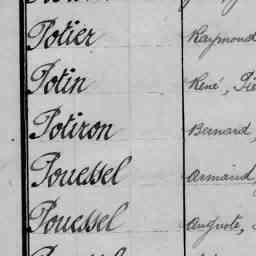 Potier Raymond
Potin René, Pie
Potiron Bernard,
Pouessel Armand,
Pouessel Auguste,